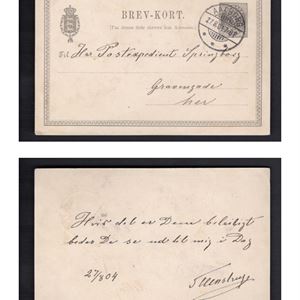 BREV-KORT.
(Paa denne Side skrives kun Adressen.)
Til Herr Postexpedient Springborg
Graavengade
her
Hvis det er Dem belejligt
bedes De se ud til mig i Dag
27/8 04